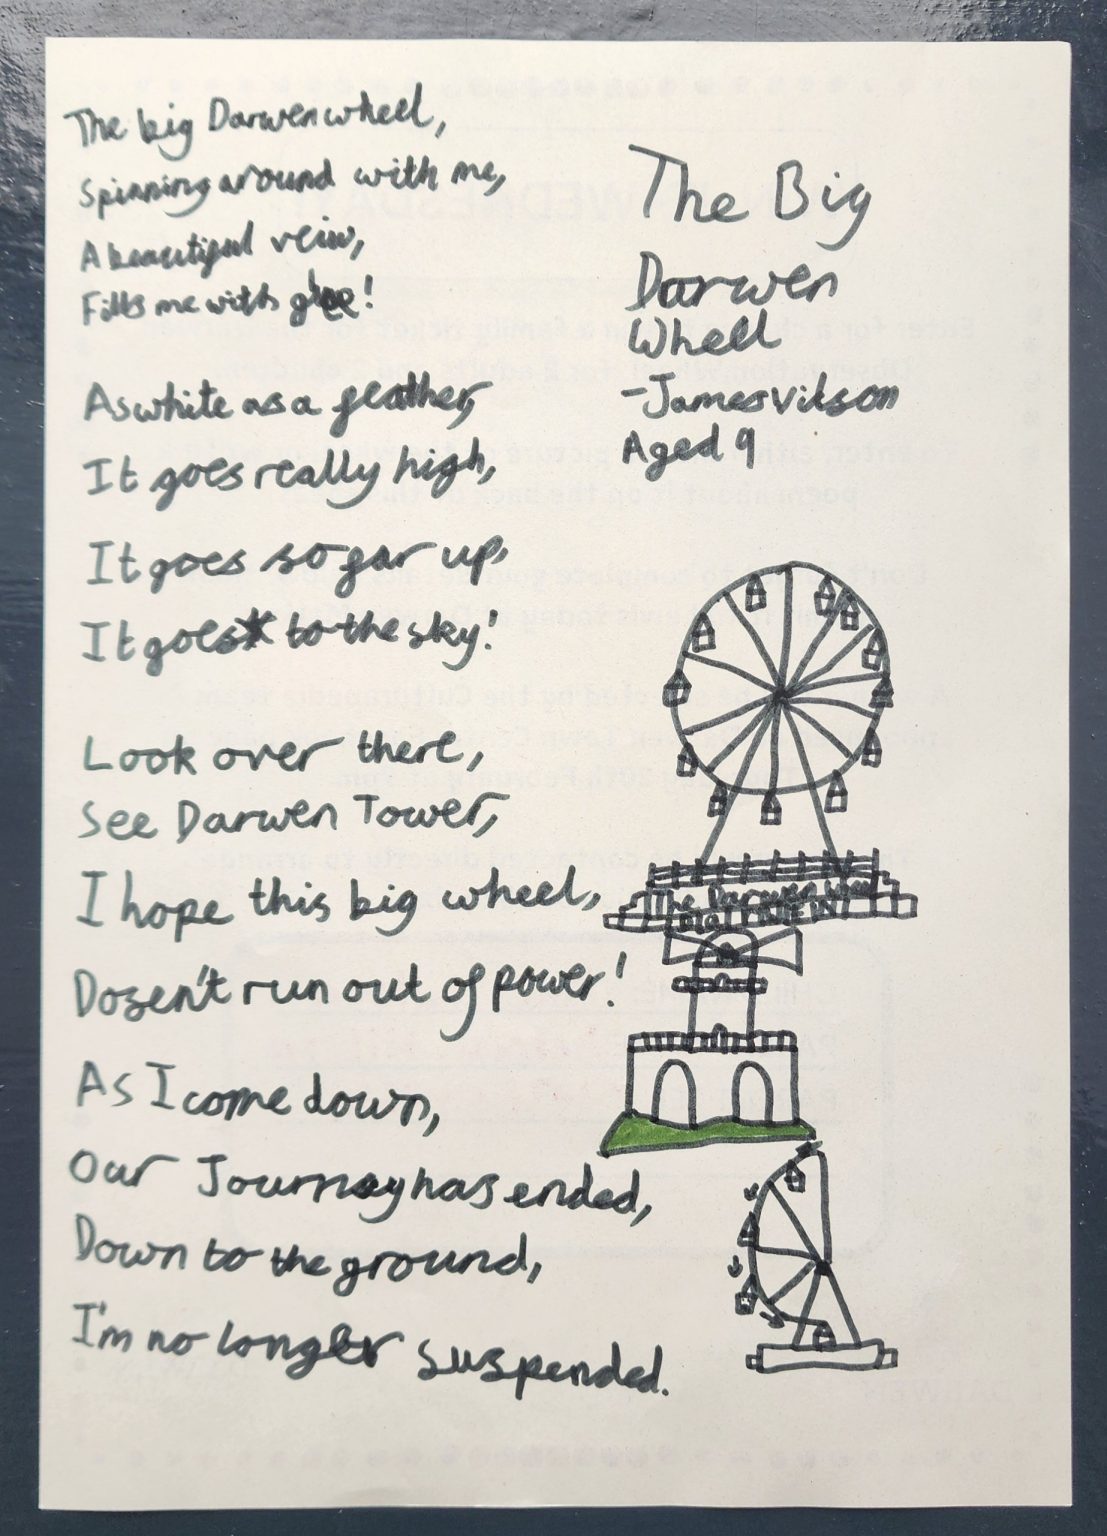 The Big
Darwen
Wheel
-James
Aged 9
The big Darwen wheel,
Spinning around with me,
A beautiful veiw,
Fills me with glee!
As white as a feather,
It goes really high,
It goes so far up,
It goes to the sky!
Look over there,
See Darwen Tower,
I hope this big wheel,
Dosen't run out of power!
As I come down,
Our Journey has ended,
Down to the ground,
I'm no longer suspended.
The Darwen wheel